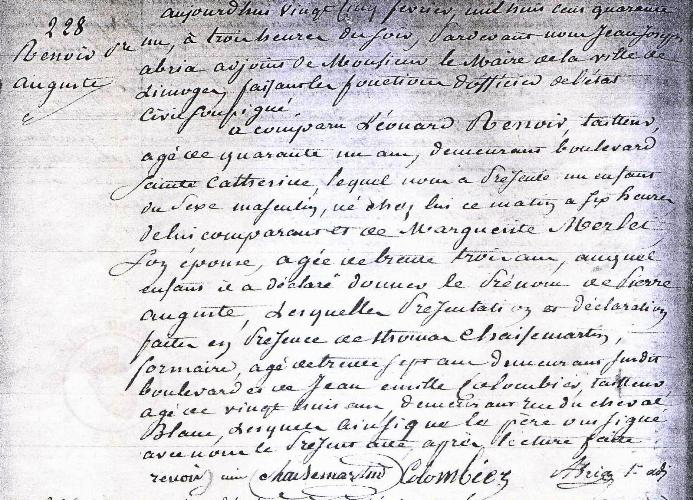 228
Renoir Pre
Auguste
aujourd'hui vingt cinq février, mil huit cent quarante
un, à trois heures du soir, Pardevant nous Jean Joseph
abria adjoint de Monsieur le Maire de la ville de
Limoges, faisant les fonctions d'officier de l'état
Civil soussigné.
à comparu Léonard Renoir, tailleur,
agé de quarante un ans, demeurant boulevard
Sainte Catherine, lequel nous a Présenté un enfant
du Sexe masculin, né chez lui ce matin à six heures,
de lui comparant et de Marguerite Merlet,
son épouse, agée de trente trois ans, auquel
enfant il a déclaré donner le Prénom de Pierre
auguste, Lesquelles Présentation et déclaration
faites en Présence de Chaisemartin,
agé de trente sept ans demeurant susdit
boulevard et de Jean Colombier, tailleur
agé de vingt huit ans, demeurant rue du cheval
Blanc, Lesquels ainsi que le père ont signé
avec nous le Présent acte, après lecture faite.
renoir Chaisemartin Colombier Abria 1er adj